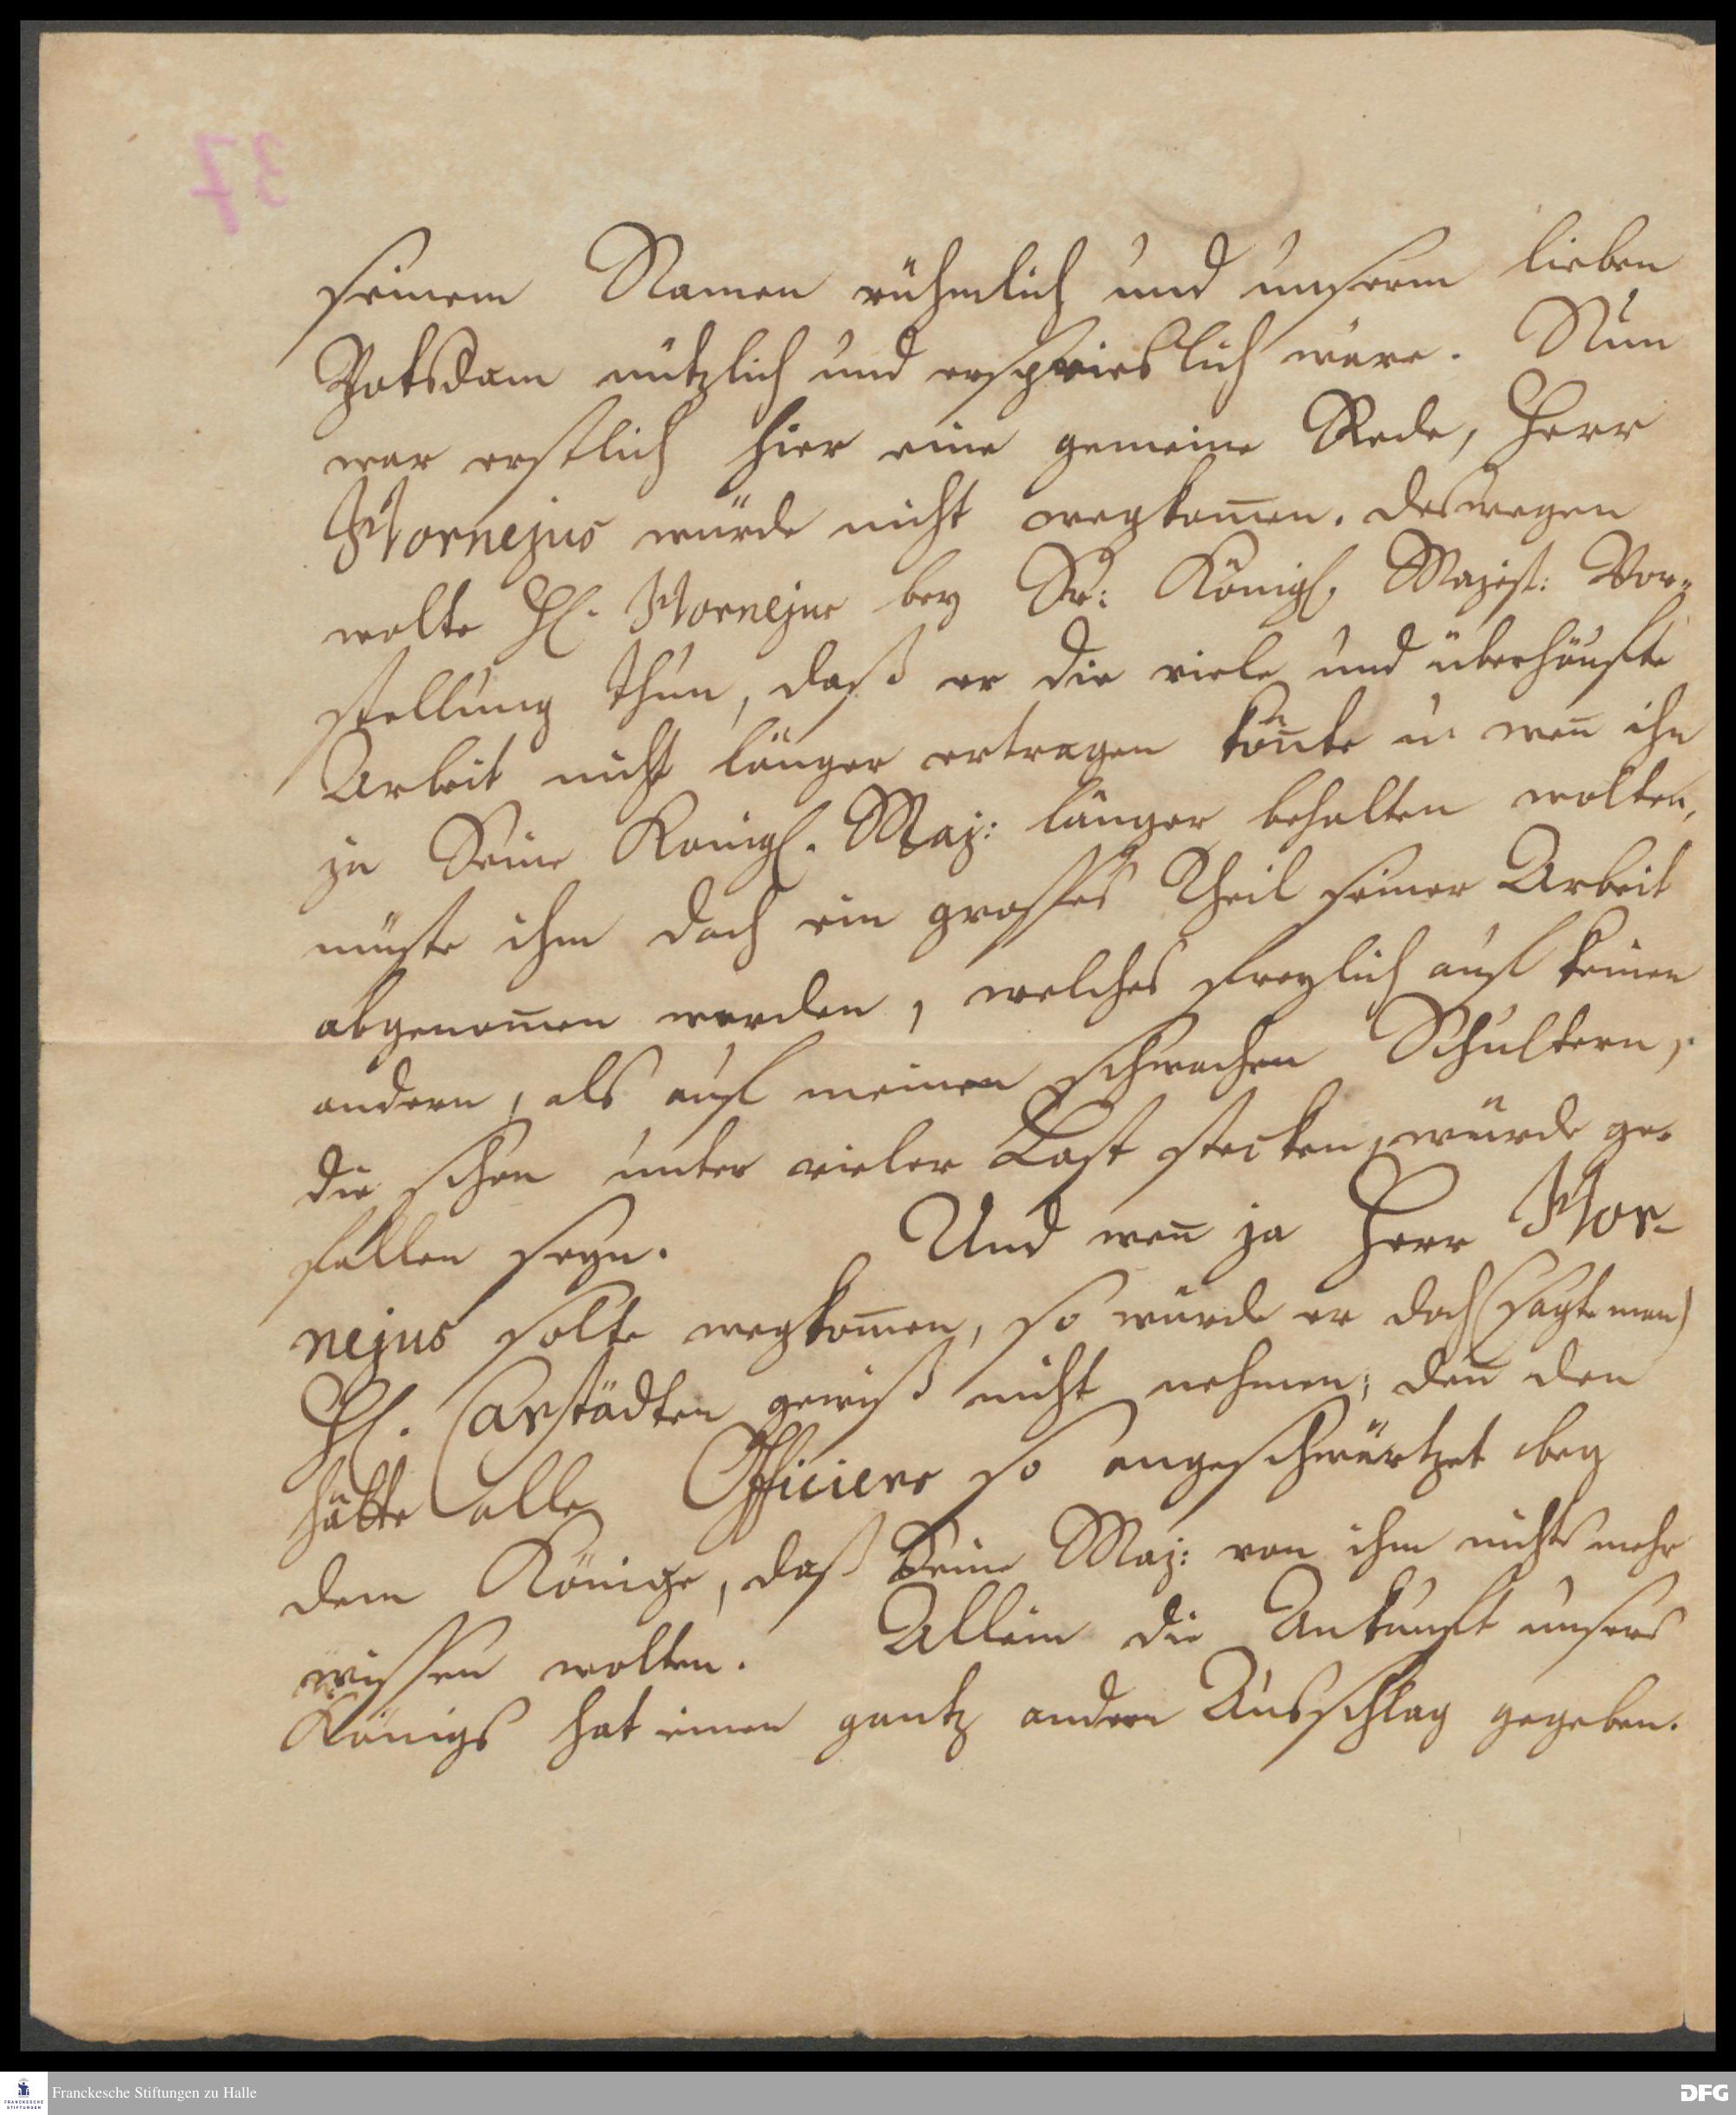 37
seinem Namen rühmlich und unserm lieben
Potsdam nützlich und ersprieslich wäre. Nun
war erstlich hier eine gemeine Rede, Herr
Hornejus würde nicht wegkom̅en. Deswegen
wolte H. Hornejus bey Sr: Königl. Majest: Vor-
stellung thun, daß er die viele und überhäufte
Arbeit nicht länger ertragen kön̅te u. wen̅ ihn
ja Seine Königl. Maj: länger behalten wolten,
müste ihm doch ein grosses Theil seiner Arbeit
abgenom̅en werden, welches freylich auf keinen
andern, als auf meinen schwachen Schultern,
die schon unter vieler Last stecken, würde ge-
fallen seyn. Und wen̅ ja Herr Hor-
nejus solte wegkom̅en, so würde er doch (sagte man)
H. Carstädten gewiß nicht nehmen; den̅ den
hätte alle Officiers so angeschwärtzet bey
dem Könige, daß Seine Maj: von ihm nichts mehr
wissen wolten. Allein die Ankunft unsers
Königs hat einen gantz andern Ausschlag gegeben.
FRANCKESCHE STIFTUNGEN
Franckesche Stiftungen zu Halle
DFG